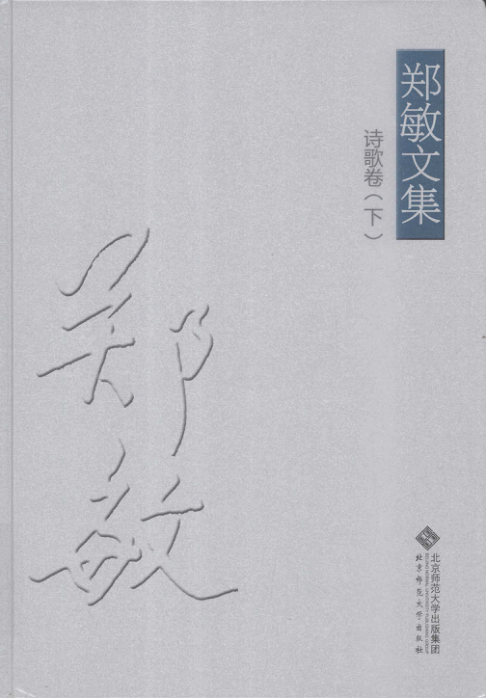 郑敏文集
诗歌卷（下）
郑敏
北京师范大学出版集团
北京师范大学出版社